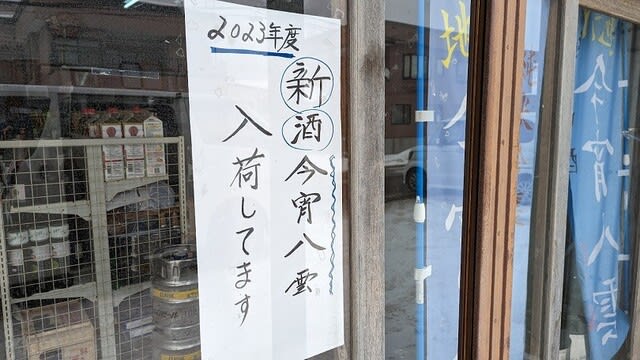 2023年度
新酒今宵八雲
入荷してます
今宵八雲